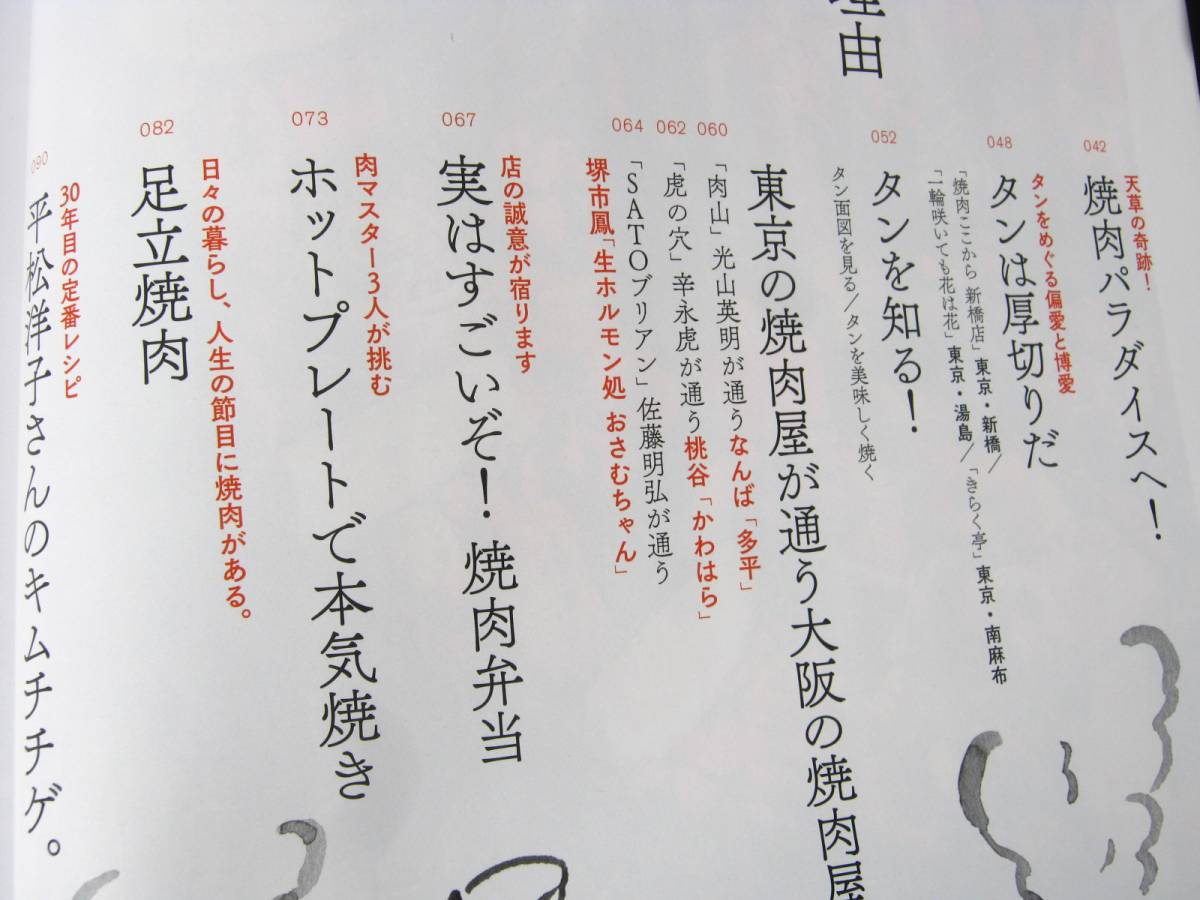 理由
042
天草の奇跡!
焼肉パラダイスへ!
048
タンをめぐる偏愛と博愛
タンは厚切りだ
「焼肉ここから 新橋店」東京・新橋/
「一輪咲いても花は花」東京・湯島/「きらく亭」東京・南麻布
052
タンを知る!
タン面図を見る/タンを美味しく焼く
東京の焼肉屋が通う大阪の焼肉屋
060
「肉山」光山英明が通うなんば「多平」
062
「虎の穴」辛永虎が通う桃谷「かわはら」
064
「SATOブリアン」佐藤明弘が通う
堺市鳳「生ホルモン処 おさむちゃん」
067
店の誠意が宿ります
実はすごいぞ! 焼肉弁当
073
肉マスター3人が挑む
ホットプレートで本気焼き
082
日々の暮らし、人生の節目に焼肉がある。
足立焼肉
090
30年目の定番レシピ
平松洋子さんのキムチチゲ。